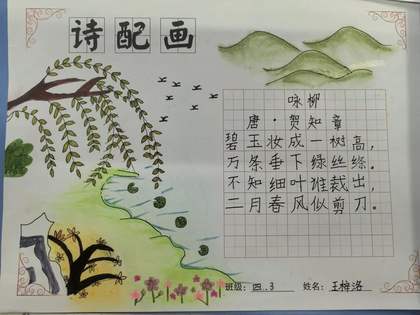 诗配画
咏柳
唐·贺知章
碧玉妆成一树高，
万条垂下绿丝绦。
不知细叶谁裁出，
二月春风似剪刀。
班级：四.3 姓名：王梓洛